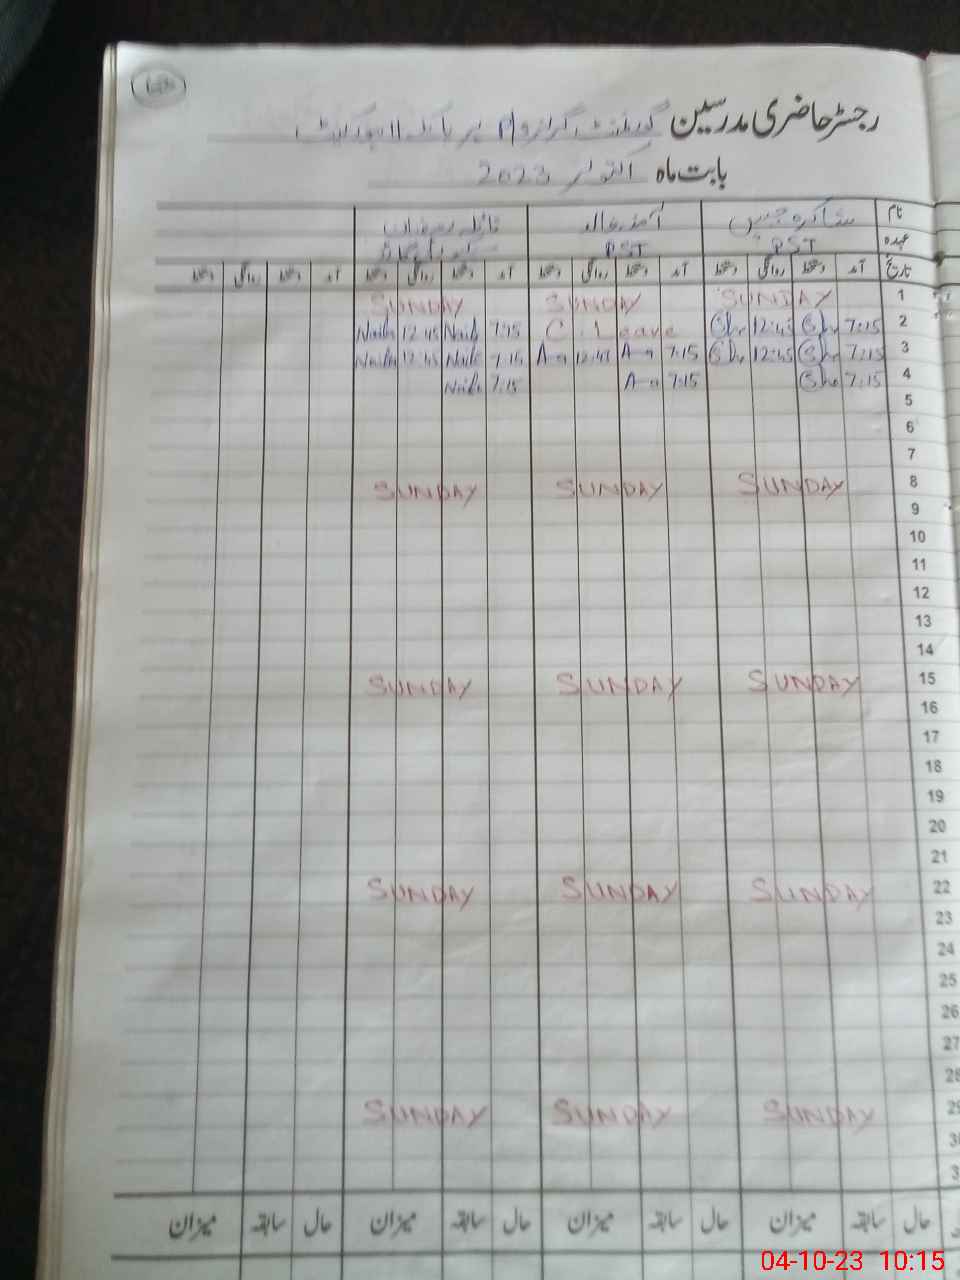 رجسٹر حاضری مدرسین گورنمنٹ گرلز
بابت ماہ اکتوبر 2023
نام
عہدہ PST PST
تاریخ آمد دستخط روانگی دستخط آمد دستخط روانگی دستخط آمد دستخط روانگی دستخط آمد دستخط روانگی دستخط
1 SUNDAY SUNDAY SUNDAY
2 7:15 12:45 C. Leave 7:15 12:45
3 7:15 12:45 7:15 12:45 7:15 12:45
4 7:15 7:15 7:15
5
6
7
8 SUNDAY SUNDAY SUNDAY
9
10
11
12
13
14
15 SUNDAY SUNDAY SUNDAY
16
17
18
19
20
21
22 SUNDAY SUNDAY SUNDAY
23
24
25
26
27
28
29 SUNDAY SUNDAY SUNDAY
حال سابقہ میزان حال سابقہ میزان حال سابقہ میزان حال سابقہ میزان
04-10-23 10:15